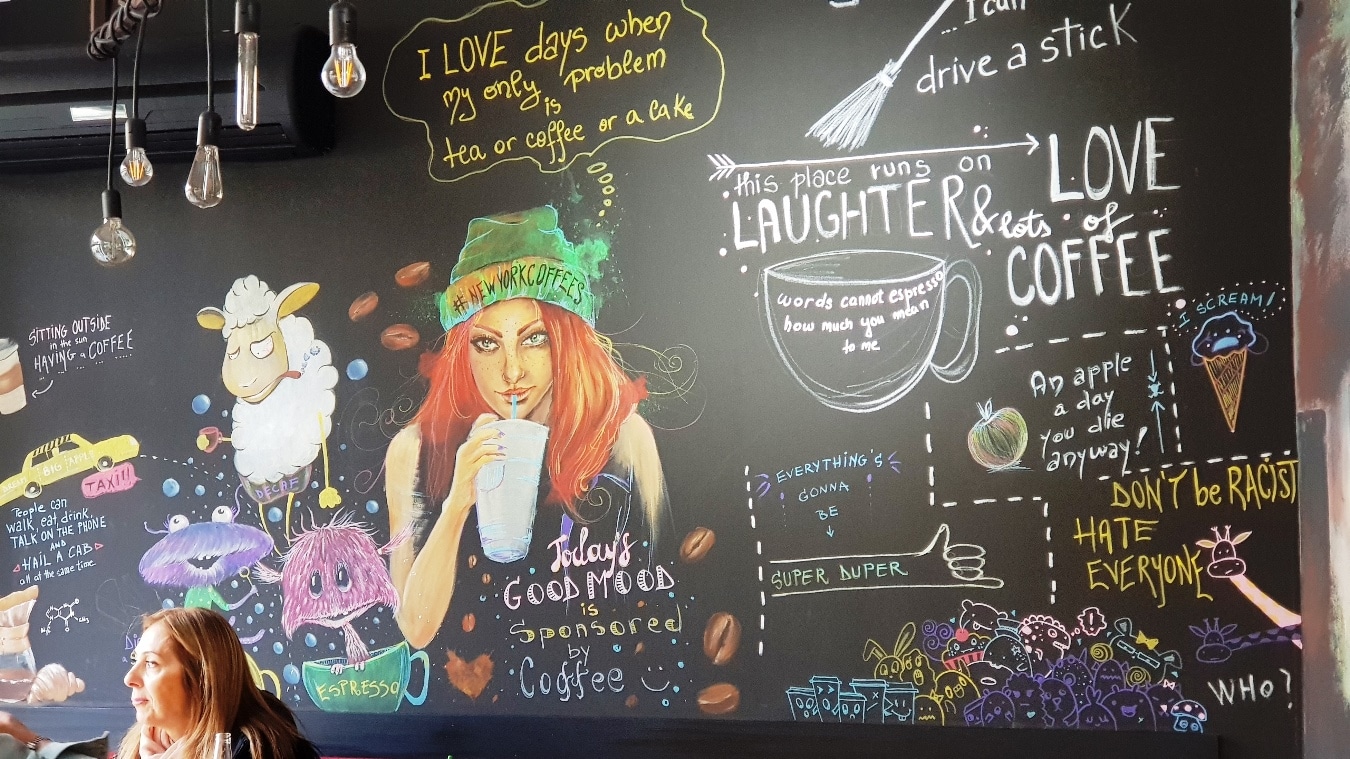 I LOVE days when
my only problem
is
tea or coffee or a cake
I can
drive a stick
this place runs on
LAUGHTER &
lots of
LOVE
COFFEE
#NEWYORKCOFFEES
words cannot espresso
how much you mean
to me
I SCREAM!
SITTING OUTSIDE
in the sun
HAVING a COFFEE
An apple
a day
you die
anyway!
BIG APPLE
TAXI!!
People can
walk, eat, drink,
TALK ON THE PHONE
AND
HAIL A CAB
all at the same time
DECAF
EVERYTHING'S
GONNA
BE
SUPER DUPER
DON'T be RACIST
HATE
EVERYONE
Today's
GOOD MOOD
is
Sponsored
by
Coffee
ESPRESSO
WHO?